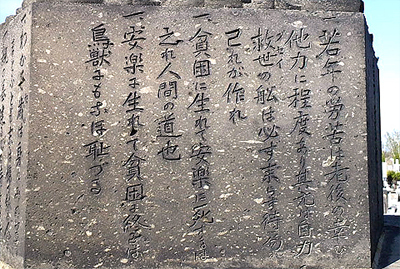 一、若年の勞苦は老後の幸ひ
他力に程度あり其元は自力
救世の船は必す来ると待な
己れが作れ
一、貧困に生れて安樂に死すは
之れ人間の道也
一、安樂に生れて貧困に終るは
鳥獣にもなほ恥づる